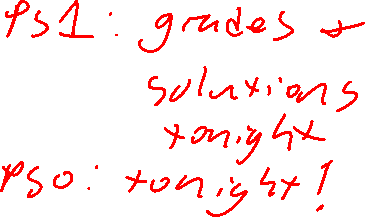 PS1: grades +
solutions
tonight
PS0: tonight!